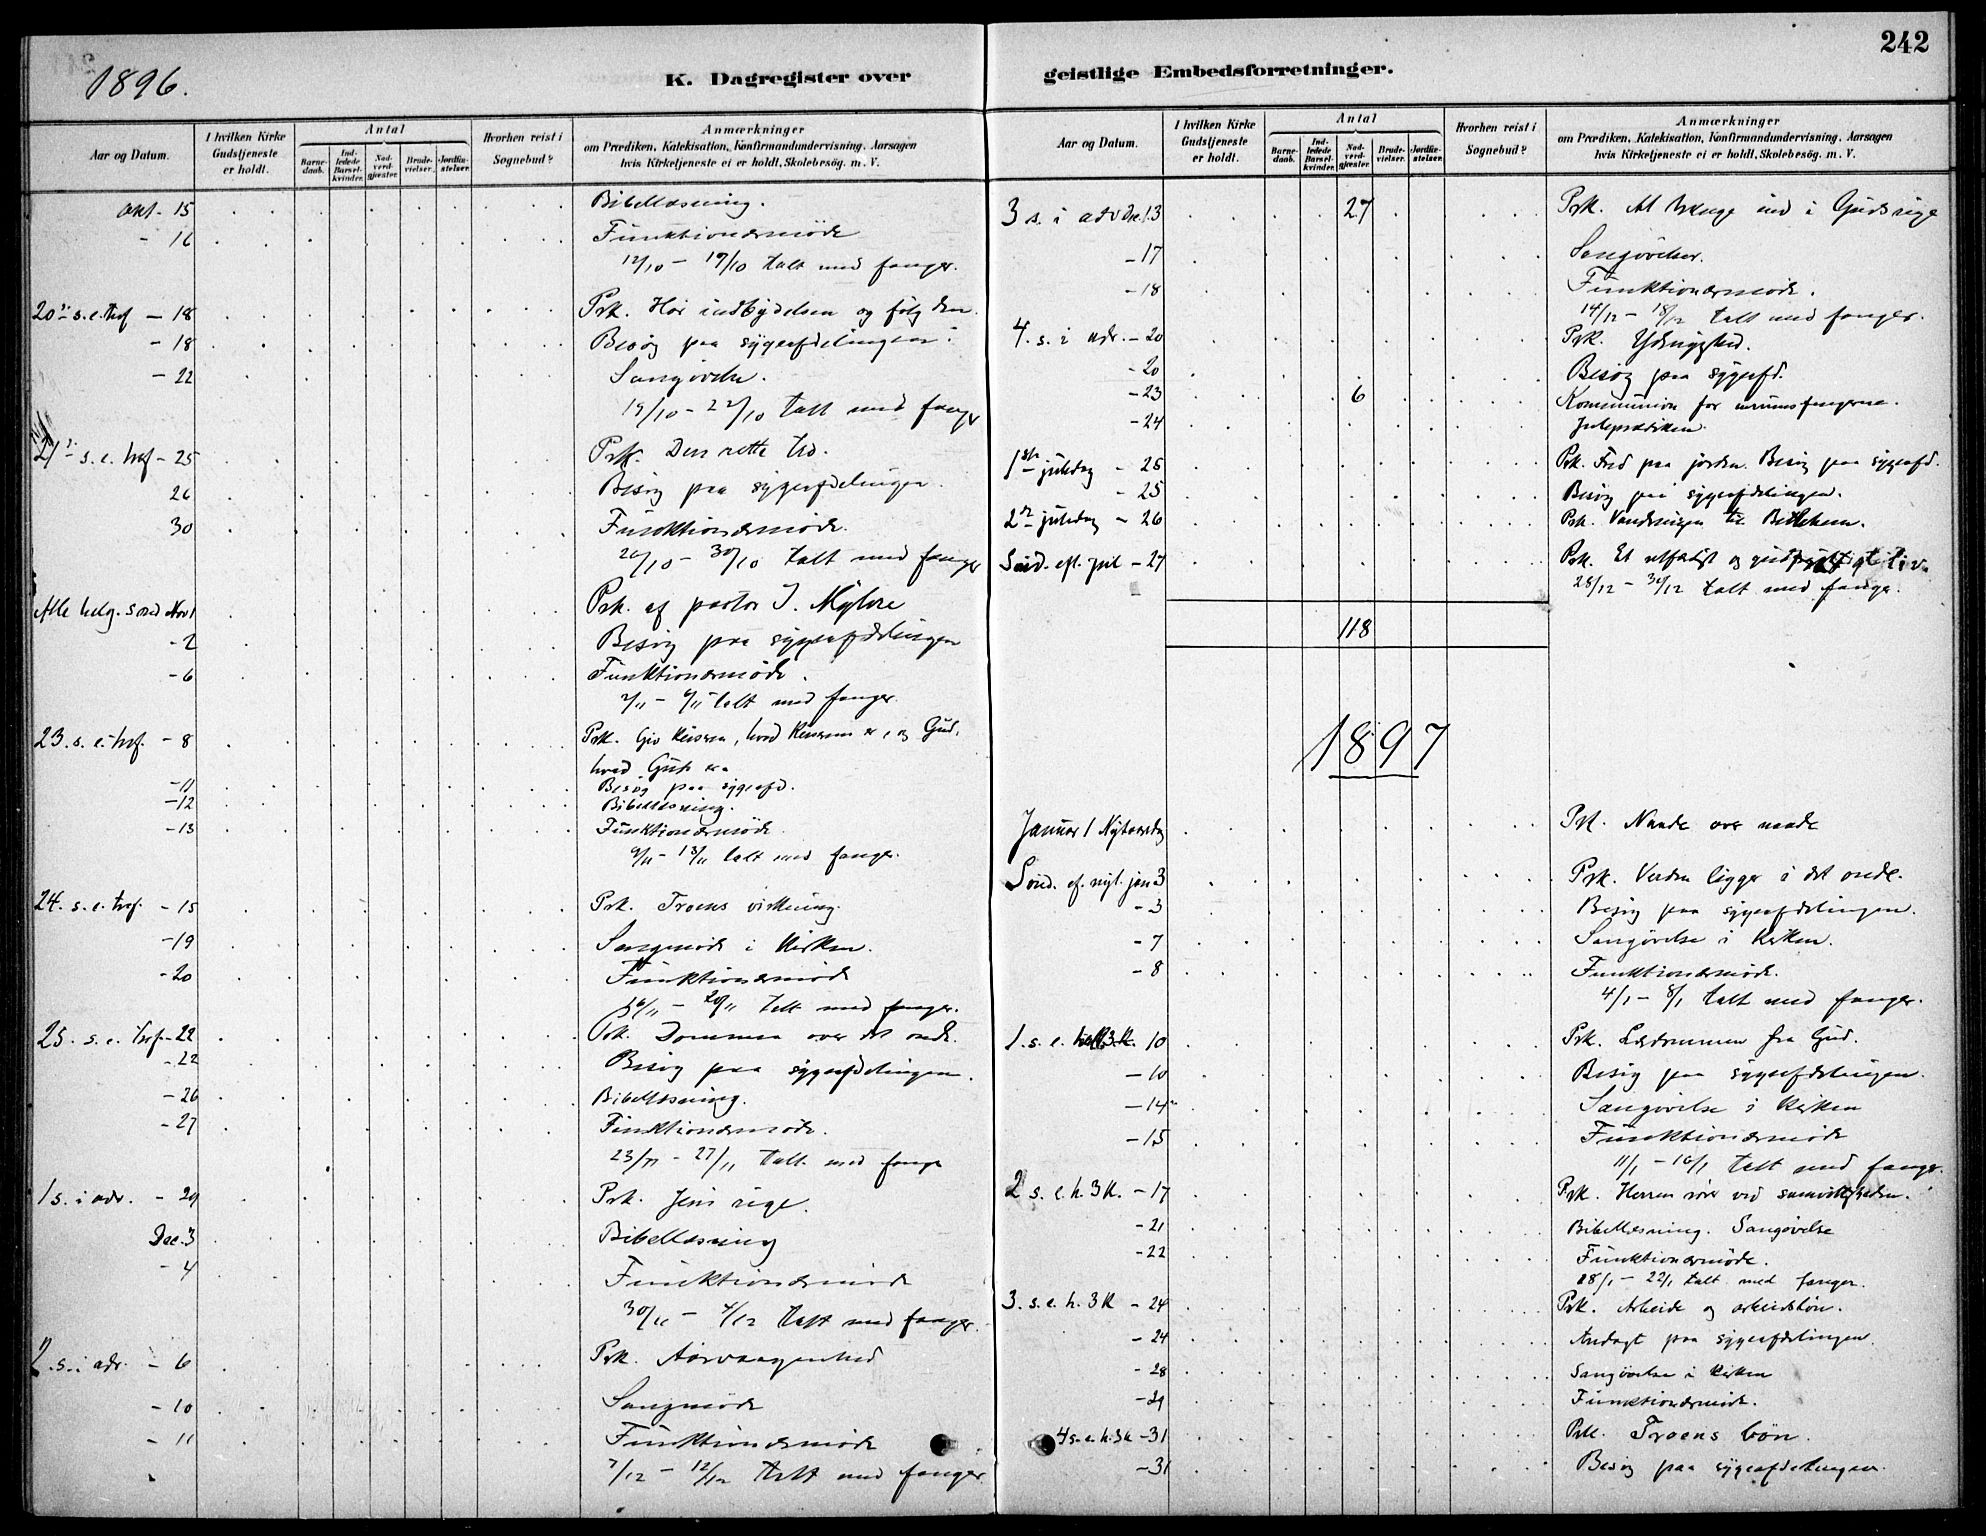 242
1896.
K. Dagregister over geistlige Embedsforretninger.
Aar og Datum.
I hvilken Kirke Gudstjeneste er holdt.
Antal
Barnedaab.
Indledede Barselkvinder.
Nadverdgjæster.
Brudevielser.
Jordfæstelser.
Hvorhen reist i Sognebud?
Anmærkninger
om Prædiken, Katekisation, Konfirmandundervisning, Aarsagen
hvis Kirketjeneste ei er holdt, Skolebesøg. m. V.
Okt. 15 Bibellæsning.
- 16 Funktionærmöde
12/10 - 17/10 talt med fanger.
20de s. e. tref - 18 Prk. Hør indbydelsen og følg den.
- 18 Besøg paa sygeafdelingen.
- 22 Sangövelse.
19/10 - 22/10 talt med fanger
21de s. e. tref - 25 Prk. Den rette tro.
26 Besøg paa sygeafdelingen.
30 Funktionærmöde.
26/10 - 30/10 talt med fanger
Alle helg. sønd Nov 1 Prk. af pastor J. Myhre
- 2 Besøg paa sygeafdelingen
- 6 Funktionærmöde.
2/11 - 6/11 talt med fanger.
23. s. e. tref. - 8 Prk. Giv keiseren, hvad keiserens er, og Gud,
hvad Guds er.
- 11 Besøg paa sygeafd.
- 12 Bibellæsning.
- 13 Funktionærmöde.
9/11 - 13/11 talt med fanger.
24. s. e. tref. - 15 Prk. Troens virkning.
- 19 Sangmöde i kirken.
- 20 Funktionærmöde
16/11 - 20/11 talt med fanger.
25. s. e. tref. - 22 Prk. Dommen over det onde.
- 22 Besøg paa sygeafdelingen.
- 26 Bibellæsning.
- 27 Funktionærmöde.
23/11 - 27/11 talt med fange
1 s. i adv. - 29 Prk. Jesu rige.
Dec. 3 Bibellæsning
- 4 Funktionærmöde
30/11 - 4/12 talt med fanger.
2. s. i adv. - 6 Prk. Aarvaagenhed
- 10 Sangmöde
- 11 Funktionærmöde
7/12 - 12/12 talt med fanger.
Aar og Datum.
I hvilken Kirke Gudstjeneste er holdt.
Antal
Barnedaab.
Indledede Barselkvinder.
Nadverdgjæster.
Brudevielser.
Jordfæstelser.
Hvorhen reist i Sognebud?
Anmærkninger
om Prædiken, Katekisation, Konfirmandundervisning, Aarsagen
hvis Kirketjeneste ei er holdt, Skolebesøg. m. V.
3 s. i adv Dec. 13 27 Prk. At trænge ind i Guds rige
- 17 Sangövelser.
- 18 Funktionærmöde.
14/12 - 18/12 talt med fanger.
4. s. i adv. - 20 Prk. Ydmyghed.
- 20 Besøg paa sygeafd.
- 23 6 Kommunion for fangerne.
- 24 Juleprædiken.
1ste juledag - 25 Prk. Fred paa jorden. Besøg paa sygeafd.
- 25 Besøg paa sygeafdelingen.
2den juledag - 26 Prk. Vandringen til Betlehem.
Sönd. eft. jul - 27 Prk. Et retfærdigt og gudfrygtigt liv.
28/12 - 30/12 talt med fanger.
118
1897
Januar 1 Nytaarsdag Prk. Naade over naade
Sönd. ef. nyt. jan 3 Prk. Verden ligger i det onde.
- 3 Besøg paa sygeafdelingen.
- 7 Sangövelse i kirken.
- 8 Funktionærmöde.
4/1 - 8/1 talt med fanger.
1. s. e. hell. 3 K. 10 Prk. Lærdommen fra Gud.
- 10 Besøg paa sygeafdelingen.
- 14 Sangövelse i kirken
- 15 Funktionærmöde
11/1 - 16/1 talt med fanger.
2 s. e. h. 3 K. - 17 Prk. Herren rörer ved samvittigheden.
- 21 Bibellæsning. Sangövelse
- 22 Funktionærmöde.
18/1 - 22/1 talt med fanger.
3. s. e. h. 3 K - 24 Prk. Arbeide og arbeidslön.
- 24 Andagt paa sygeafdelingen
- 28 Sangövelse i kirken
- 29 Funktionærmöde.
4 s. e. h. 3 K - 31 Prk. Troens bön.
- 31 Besøg paa sygeafdelingen.